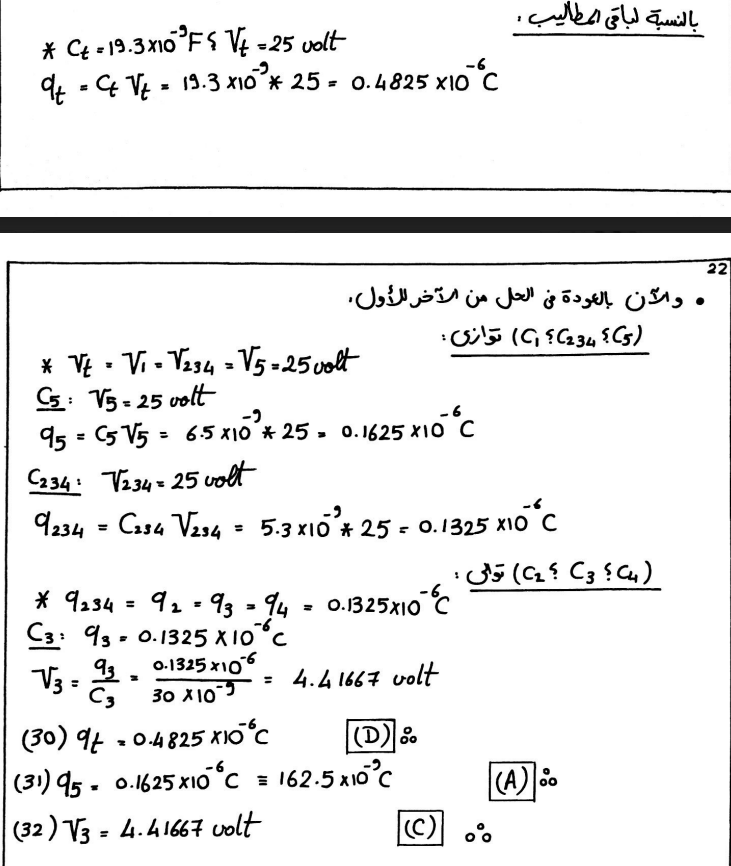 بالنسبة لباقي المطاليب :
* Ct = 19.3 x10^-9 F ؟ Vt = 25 volt
qt = Ct Vt = 19.3 x10^-9 * 25 = 0.4825 x10^-6 C
22
• والآن بالعودة في الحل من الآخر للأول.
(C1 ؟ C234 ؟ C5) توازى :
* Vt = V1 = V234 = V5 = 25 volt
C5 : V5 = 25 volt
q5 = C5 V5 = 6.5 x10^-9 * 25 = 0.1625 x10^-6 C
C234 : V234 = 25 volt
q234 = C234 V234 = 5.3 x10^-9 * 25 = 0.1325 x10^-6 C
(C2 ؟ C3 ؟ C4) توالى :
* q234 = q2 = q3 = q4 = 0.1325x10^-6 C
C3 : q3 = 0.1325 x10^-6 C
V3 = q3/C3 = 0.1325 x10^-6 / 30 x10^-9 = 4.41667 volt
(30) qt = 0.4825 x10^-6 C (D) ஃ
(31) q5 = 0.1625x10^-6 C ≡ 162.5x10^-9 C (A) ஃ
(32) V3 = 4.41667 volt (C) ஃ